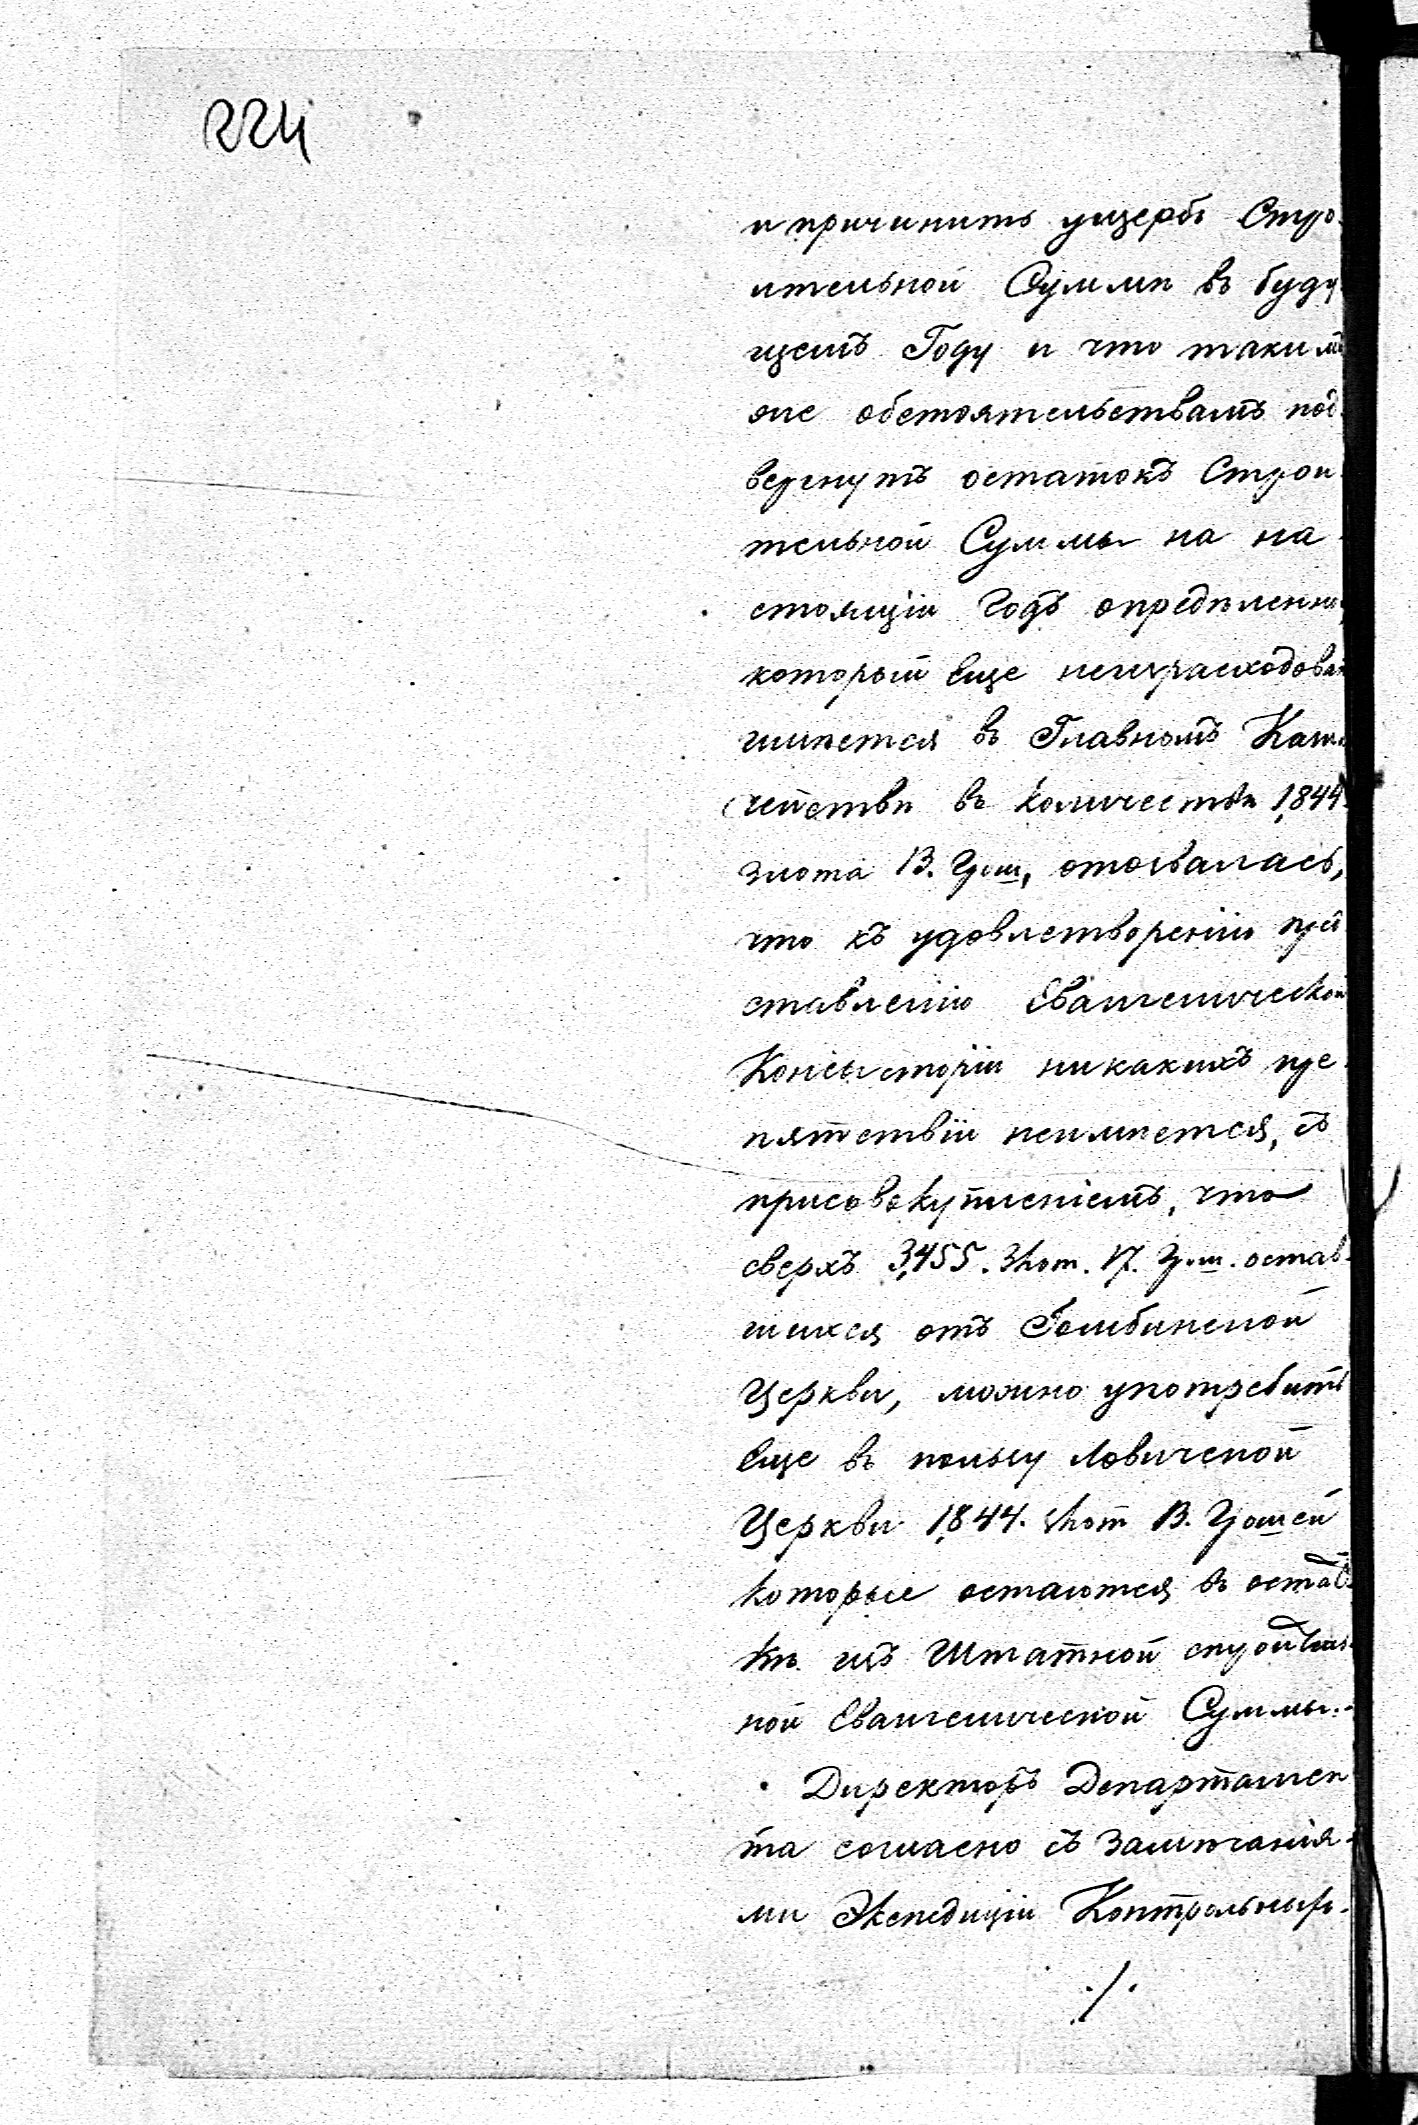 224
и причинить ущербъ Стро-
ительной Суммѣ въ буду
щемъ Году и что такимъ
же обстоятельствамъ под-
вергнутъ остатокъ Строи-
тельной Суммы на на-
стоящій Годъ опредѣленной
который еще неизрасходован
имѣется въ Главномъ Казна
чействѣ въ количествѣ 1,844.
злота 13. Грош, отозвалась,
что къ удовлетворенію пред
ставленію Евангелической
Консисторіи никакихъ пре-
пятствій неимѣется, съ
присовокупленіемъ, что
сверхъ 3,455. Злот. 17. Грош. остав-
шихся отъ Гомбинской
Церкви, можно употребить
еще въ пользу Ловичской
Церкви 1,844. злот 13. Грошей
которые остаются въ остат-
кѣ изъ Штатной строитель-
ной Евангелической Суммы.-
Директоръ Департамен
та согласно съ замѣчанія-
ми Экспедиціи Контрольныхъ-
./.